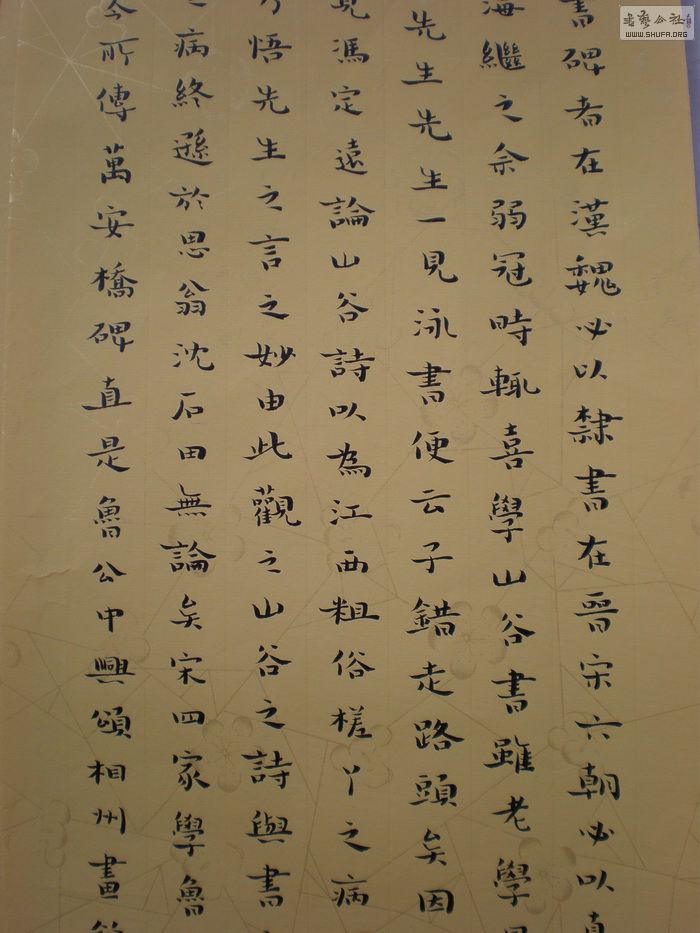 書碑者在漢魏必以隸書在晉宋六朝必以真
海繼之余弱冠時輒喜學山谷書雖老學
先生先生一見泳書便云子錯走路頭矣因
見馮定遠論山谷詩以為江西粗俗槎丫之病
乃悟先生之言之妙由此觀之山谷之詩與書
病終遜於思翁沈石田無論矣宋四家學魯
今所傳萬安橋碑直是魯公中興頌相州晝
书艺公社
WWW.SHUFA.ORG